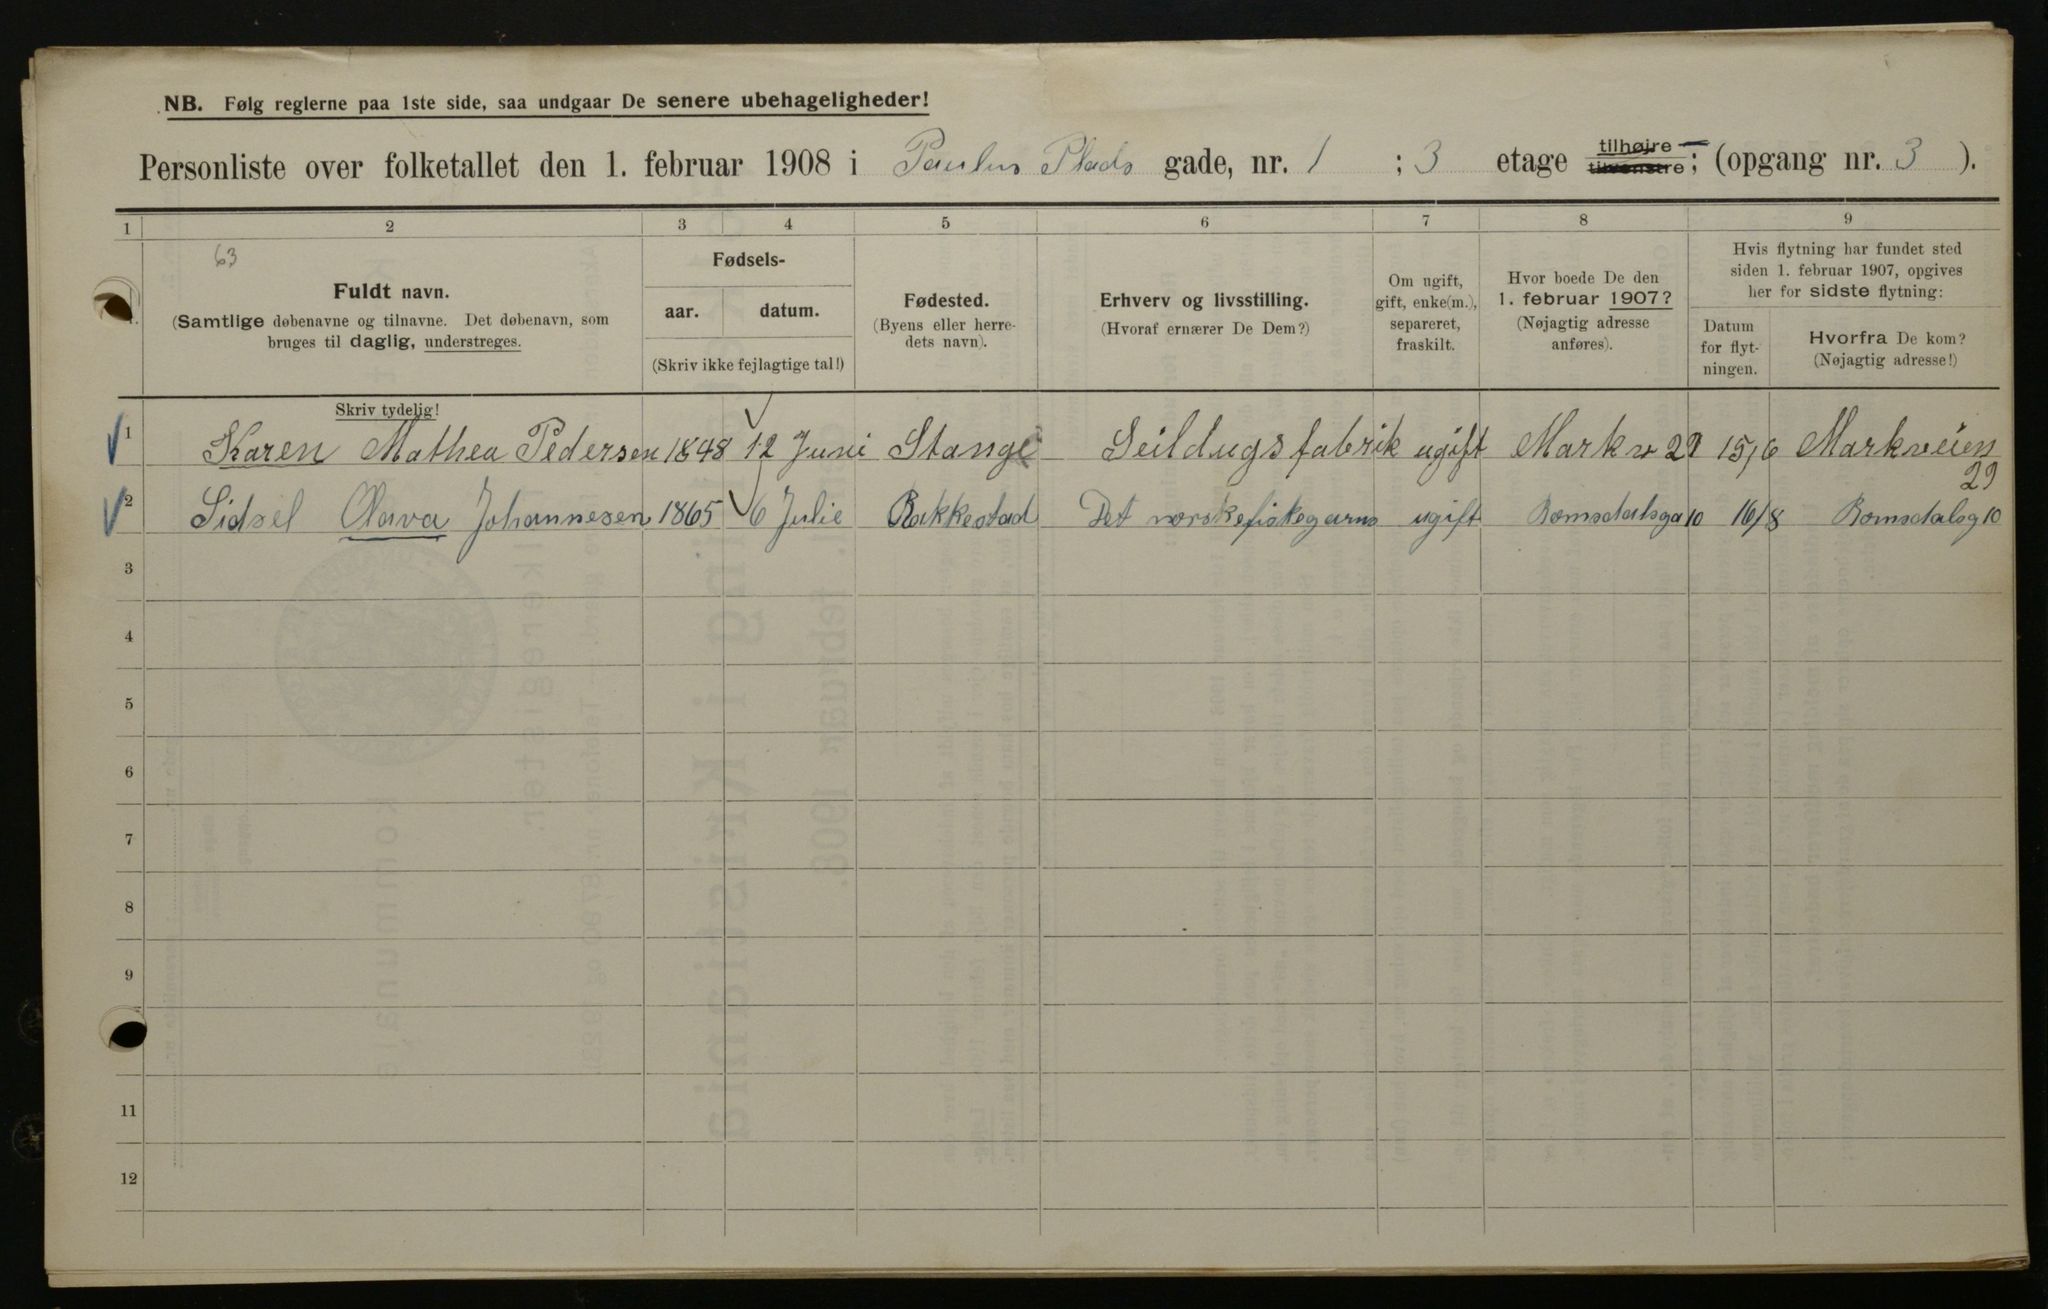 NB. Følg reglerne paa 1ste side, saa undgaar De senere ubehageligheder!
Personliste over folketallet den 1. februar 1908 i Paulus Plads gade, nr. 1 ; 3 etage tilhøjre tilvenstre ; (opgang nr. 3 ).
1 2 3 4 5 6 7 8 9
63
Fuldt navn.
(Samtlige døbenavne og tilnavne. Det døbenavn, som
bruges til daglig, understreges.
Skriv tydelig!
Fødsels-
aar. datum.
(Skriv ikke fejlagtige tal!)
Fødested.
(Byens eller herre-
dets navn).
Erhverv og livsstilling.
(Hvoraf ernærer De Dem?)
Om ugift,
gift, enke(m.),
separeret,
fraskilt.
Hvor boede De den
1. februar 1907?
(Nøjagtig adresse
anføres).
Hvis flytning har fundet sted
siden 1. februar 1907, opgives
her for sidste flytning:
Datum
for flyt-
ningen.
Hvorfra De kom?
(Nøjagtig adresse!)
1 Karen Mathea Pedersen 1848 12 Juni Stange Seildugsfabrik ugift Markv 29 15/6 Markveien
29
2 Sidsel Olava Johannesen 1865 6 Julie Rakkestad Det norske fiskegarns ugift Romsdalsga 10 16/8 Romsdalsg 10
3
4
5
6
7
8
9
11
12